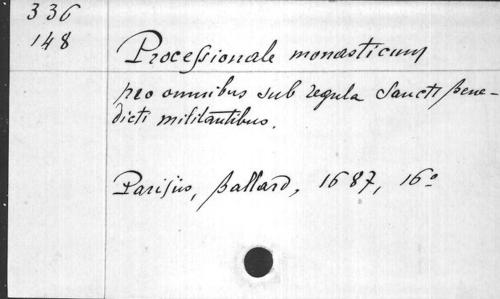 336
148
Processionale monasticum
pro omnibus sub regula Sancti Bene-
dicti militantibus.
Parisiis, Ballard, 1687, 16º